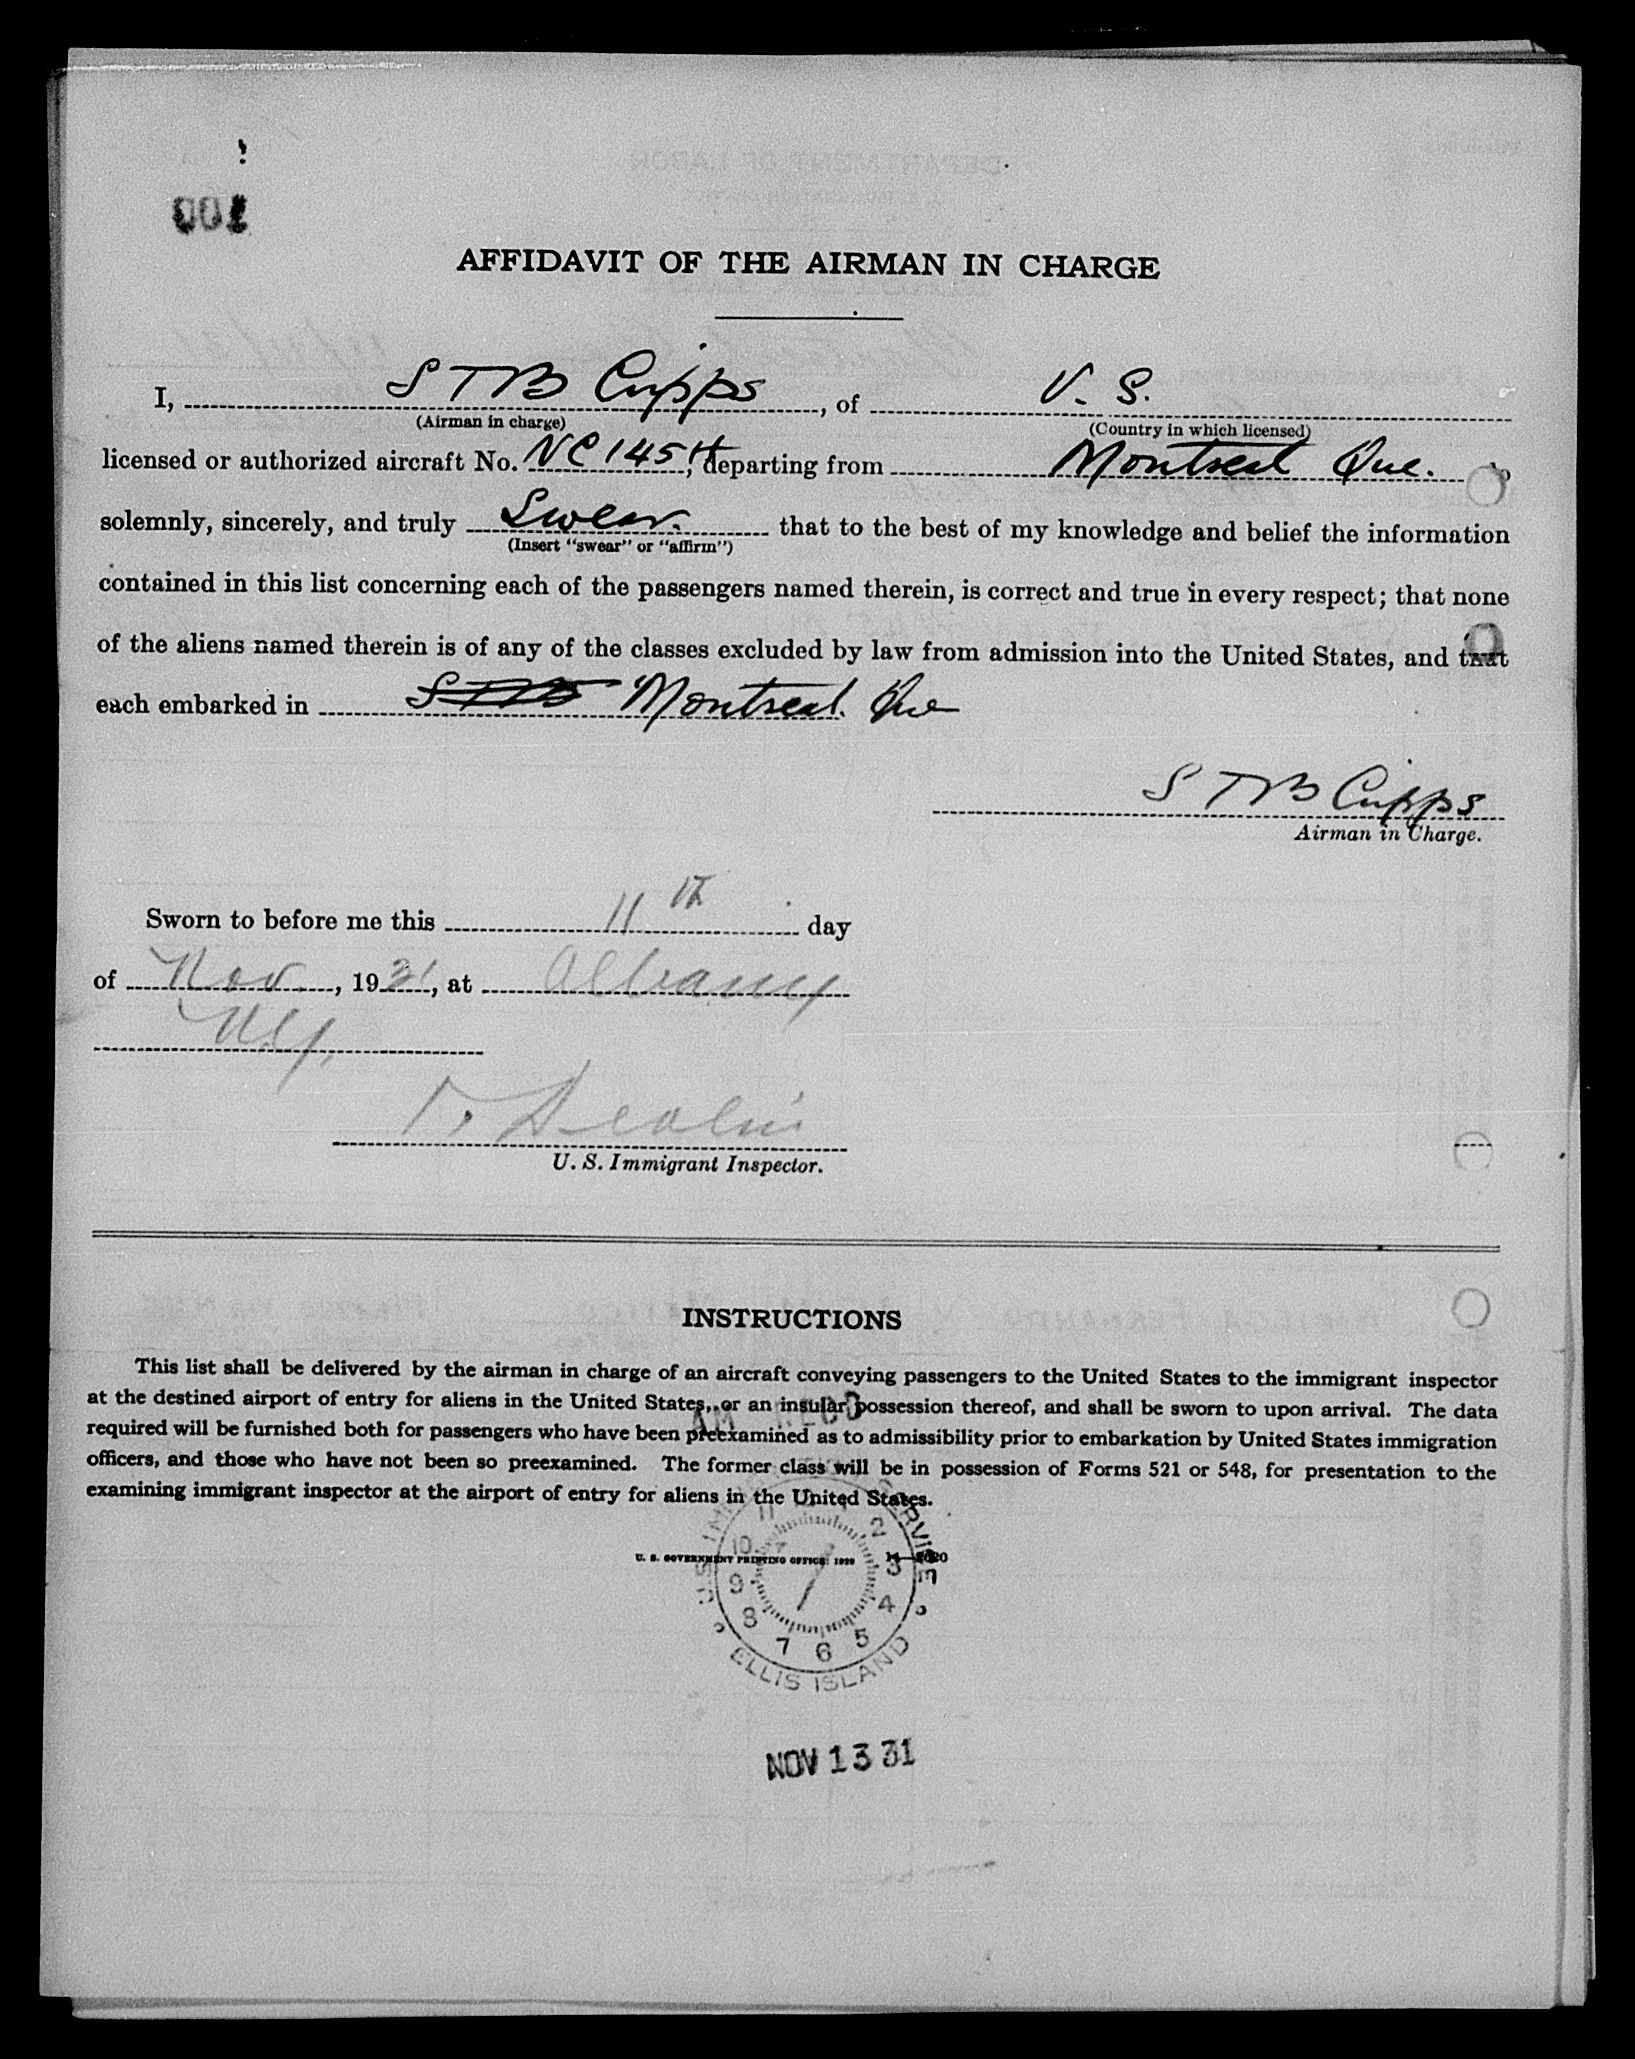 001
AFFIDAVIT OF THE AIRMAN IN CHARGE
I, S T B Cripps, of U. S.
(Airman in charge) (Country in which licensed)
licensed or authorized aircraft No. NC 145H, departing from Montreal Que. do
solemnly, sincerely, and truly Swear. that to the best of my knowledge and belief the information
(Insert "swear" or "affirm")
contained in this list concerning each of the passengers named therein, is correct and true in every respect; that none
of the aliens named therein is of any of the classes excluded by law from admission into the United States, and that
each embarked in Montreal. Que
S T B Cripps
Airman in Charge.
Sworn to before me this 11th day
of Nov., 1931, at Albany
N.Y.
U. S. Immigrant Inspector.
INSTRUCTIONS
This list shall be delivered by the airman in charge of an aircraft conveying passengers to the United States to the immigrant inspector
at the destined airport of entry for aliens in the United States, or an insular possession thereof, and shall be sworn to upon arrival. The data
required will be furnished both for passengers who have been preexamined as to admissibility prior to embarkation by United States immigration
officers, and those who have not been so preexamined. The former class will be in possession of Forms 521 or 548, for presentation to the
examining immigrant inspector at the airport of entry for aliens in the United States.
U. S. GOVERNMENT PRINTING OFFICE: 1929
11 2 10 3 9 4 8 5 7 6
ELLIS ISLAND
NOV 13 31